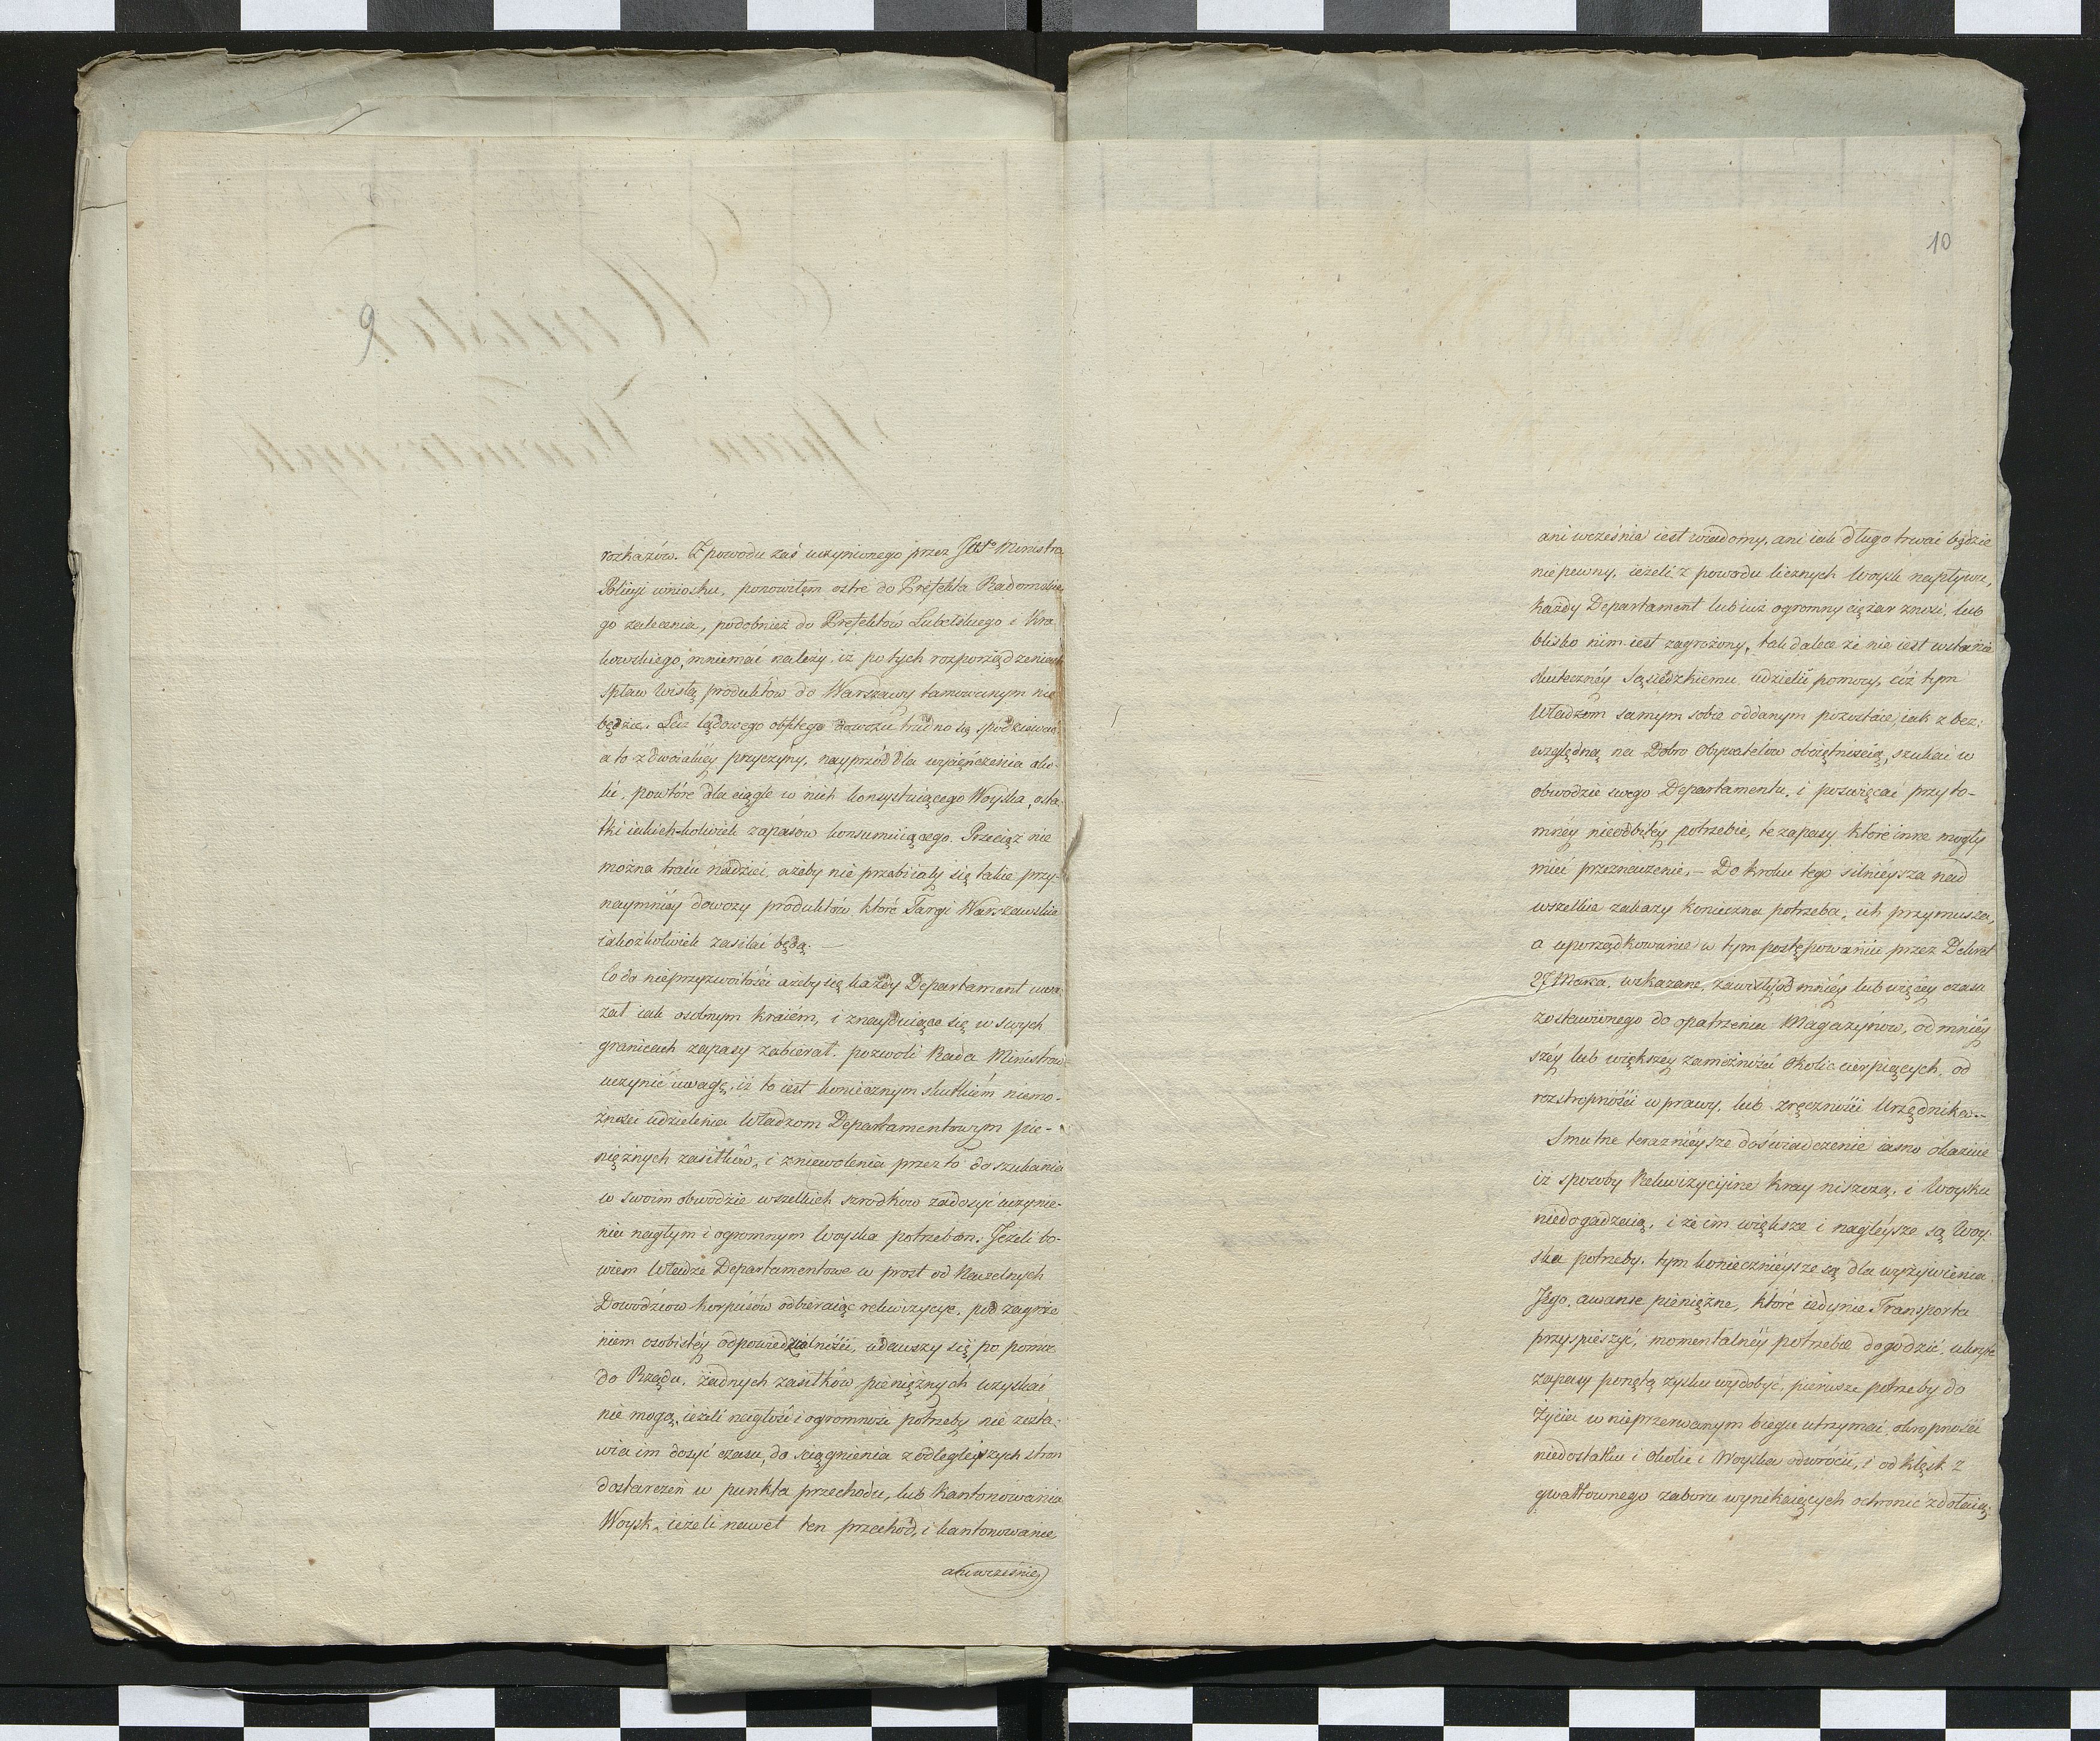 rozkazów. Z powodu zaś uczynionego przez JWgo Ministra
Policyi wniosku, ponowiłem ostre do Prefekta Radomskie
go zalecenia, podobnież do Prefektów Lubelskiego i Kra
kowskiego, mniemać należy iż po tych rozporządzeniach
spław Wisłą produktów do Warszawy tamowanym nie
będzie. Lecz lądowego obfitego dowozu trudno się spodziewać
a to z dwoiakiéy przyczyny, nayprzód dla wycięńczenia oko-
lic, powtóre dla ciągle w nich konsystuiącego Woyska, osta-
tki iakich-kolwiek zapasów konsumuiącego. Przeciąż nie
można tracić nadziei, ażeby nie przebiiały się takie przy-
naymniéy dowozy produktów, które Targi Warszawskie
iakożkolwiek zasilać będą. —
Co do nieprzyzwoitości ażeby się każdy Departament uwa
żał iak osobnym kraiem, i znayduiące się w swych
granicach zapasy zabierał. pozwoli Rada Ministrów
uczynić uwagę, iż to iest koniecznym skutkiem niemo-
żności udzielenia Władzom Departamentowym pie-
niężnych zasiłków, i zniewolenia przez to do szukania
w swoim obwodzie wszelkich szrodków zadosyć uczynie-
nia nagłym i ogromnym Woyska potrzebom. Jeżeli bo-
wiem Władze Departamentowe w prost od Naczelnych
Dowódzców korpusów odbieraiąc rekwizycye, pod zagroże
niem osobistéy odpowiedzialności, udawszy się po pomoc
do Rządu, żadnych zasiłków pieniężnych uzyskać
nie mogą, ieżeli nagłość i ogromność potrzeby nie zosta-
wia im dosyć czasu, do sciągnienia z odległeyszych stron
dostarczeń w punkta przechodu, lub kantonowania
Woysk, ieżeli nawet ten przechód, i kantonowanie,
ani wcześnie
9
10
ani wcześnie iest wiadomy, ani iak długo trwać będzie
niepewny, ieżeli z powodu licznych Woysk napływu,
każdy Departament lub iuż ogromny ciężar znosi, lub
blisko nim iest zagrożony, tak dalece że nie iest wstanie
skutecznéy Sąsiedzkiemu udzielić pomocy, cóż tym
Władzom samym sobie oddanym pozostaie, iak z bez-
względną na Dobro Obywatelów obojętnością, szukać w
obwodzie swego Departamentu, i poswięcać przyto-
mnéy nieodbitéy potrzebie, te zapasy, które inne mogły
mieć przeznaczenie. — Do kroku tego silnieysza nad
wszelkie zakazy konieczna potrzeba, ich przymusza,
a uporządkowanie w tym postępowaniu przez Dekret
27 Marca, wskazane, zawisły od mniéy lub więcéy czasu
zostawionego do opatrzenia Magazynów, od mniéy
széy lub większey zamożności okolic cierpiących, od
roztropności wprawy, lub zręczności Urzędnika. -
Smutne teraznieysze doświadczenie iasno okazuie
iż sposoby Rekwizycyine kray niszczą, i Woysku
niedogadzaią, i że im większe i nagleysze są Woy-
ska potrzeby, tym koniecznieysze są dla wyżywienia
Jego, awanse pieniężne, które iedynie Transporta
przyspieszyć, momentalnéy potrzebie dogodzić, ukryte
zapasy ponętą zysku wydobyć, pierwsze potrzeby do
życia w nieprzerwanym biegu utrzymać, okropności
niedostatku i okolic i Woyska odwrócić, i od klęsk z
gwałtownego zaboru wynikaiących ochronić zdołaią: